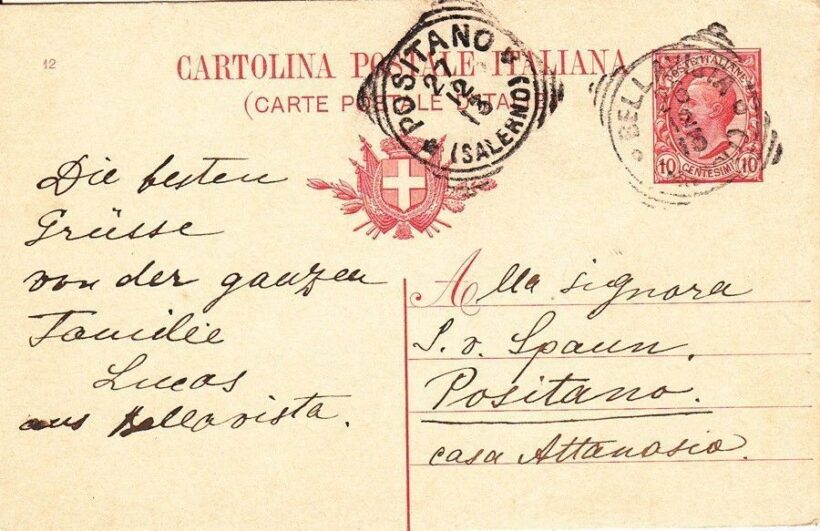 12
CARTOLINA POSTALE ITALIANA
(CARTE POSTALE D'ITALIE)
POSITANO
(SALERNO)
27
12
13
BELLAVISTA
POSTE ITALIANE
10 CENTESIMI 10
Die besten
Grüsse
von der ganzen
Familie
Lucas
aus Bellavista.
Alla signora
S. v. Spaun.
Positano.
casa Attanasio.